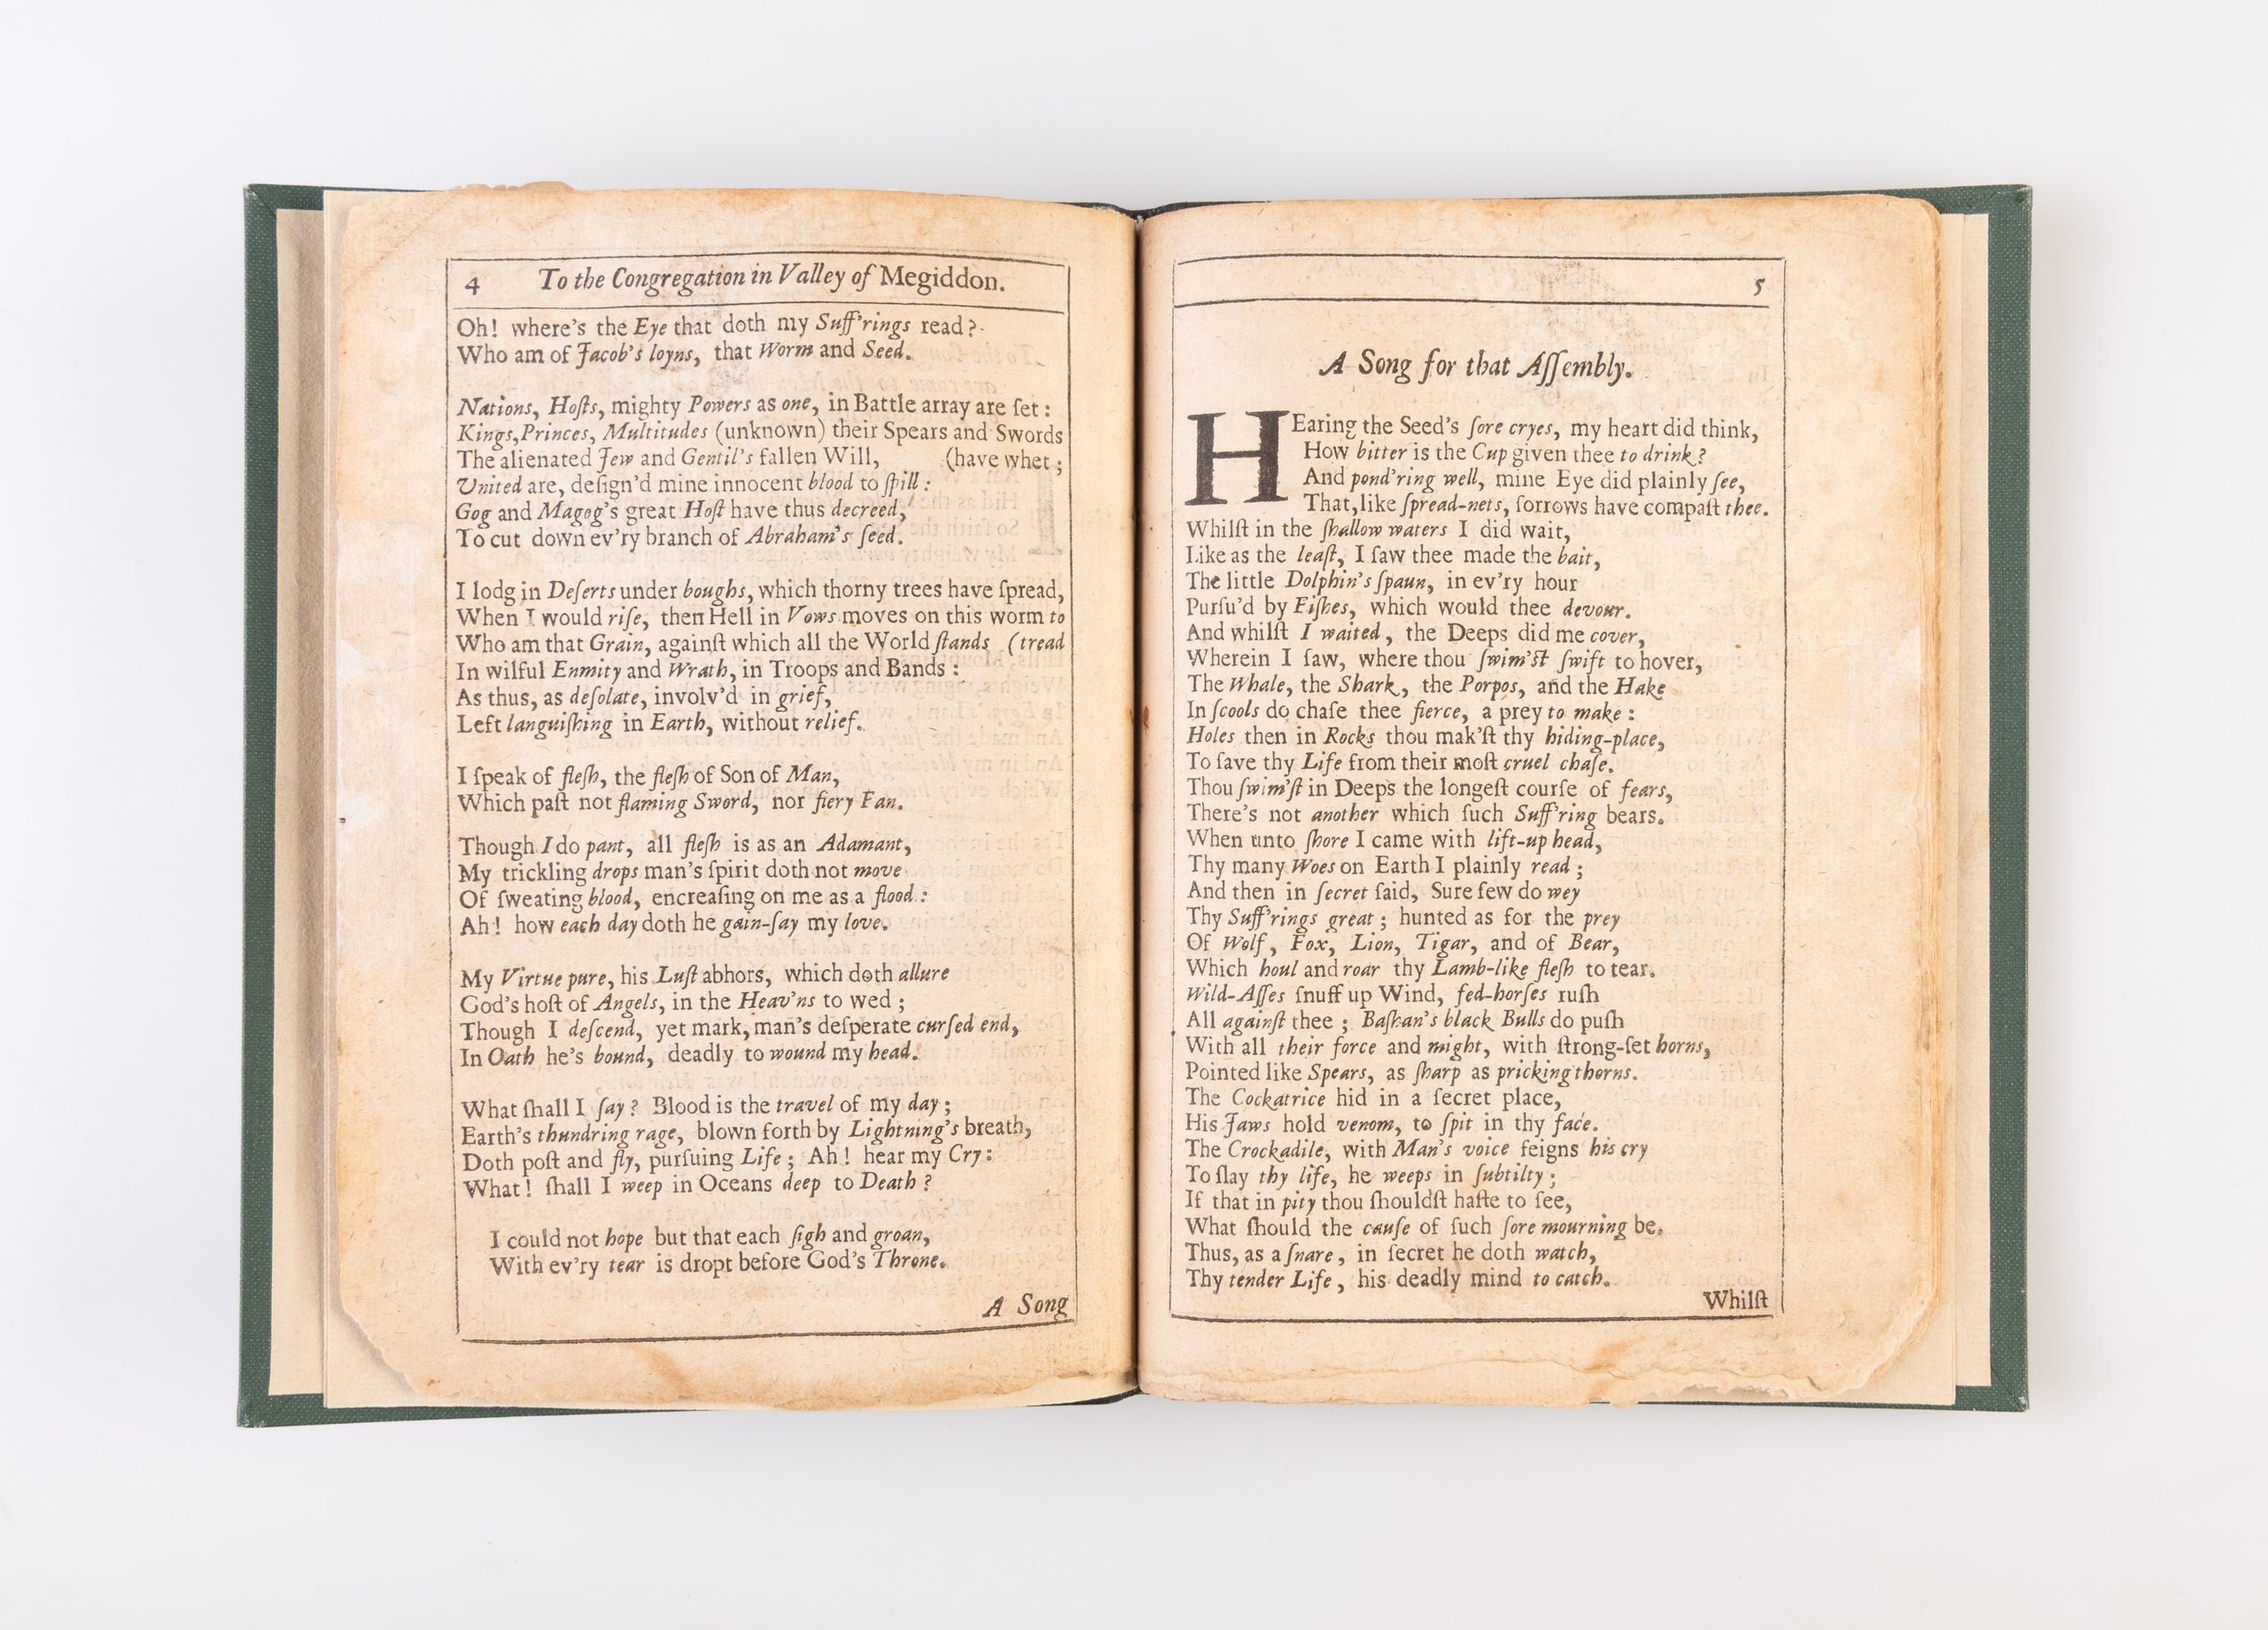 4 To the Congregation in Valley of Megiddon.
Oh! where's the Eye that doth my Suff'rings read?
Who am of Jacob's loyns, that Worm and Seed.
Nations, Hoſts, mighty Powers as one, in Battle array are ſet:
Kings, Princes, Multitudes (unknown) their Spears and Swords
The alienated Jew and Gentil's fallen Will, (have whet;
United are, deſign'd mine innocent blood to ſpill:
Gog and Magog's great Hoſt have thus decreed,
To cut down ev'ry branch of Abraham's ſeed.
I lodg in Deſerts under boughs, which thorny trees have ſpread,
When I would riſe, then Hell in Vows moves on this worm to
Who am that Grain, againſt which all the World ſtands (tread
In wilful Enmity and Wrath, in Troops and Bands:
As thus, as deſolate, involv'd in grief,
Left languiſhing in Earth, without relief.
I ſpeak of fleſh, the fleſh of Son of Man,
Which paſt not flaming Sword, nor fiery Fan.
Though I do pant, all fleſh is as an Adamant,
My trickling drops man's ſpirit doth not move
Of ſweating blood, encreaſing on me as a flood:
Ah! how each day doth he gain-ſay my love.
My Virtue pure, his Luſt abhors, which doth allure
God's hoſt of Angels, in the Heav'ns to wed;
Though I deſcend, yet mark, man's deſperate curſed end,
In Oath he's bound, deadly to wound my head.
What ſhall I ſay? Blood is the travel of my day;
Earth's thundring rage, blown forth by Lightning's breath,
Doth poſt and fly, purſuing Life; Ah! hear my Cry:
What! ſhall I weep in Oceans deep to Death?
I could not hope but that each ſigh and groan,
With ev'ry tear is dropt before God's Throne.
A Song
5
A Song for that Aſſembly.
HEaring the Seed's ſore cryes, my heart did think,
How bitter is the Cup given thee to drink?
And pond'ring well, mine Eye did plainly ſee,
That, like ſpread-nets, ſorrows have compaſt thee.
Whilſt in the ſhallow waters I did wait,
Like as the leaſt, I ſaw thee made the bait,
The little Dolphin's ſpaun, in ev'ry hour
Purſu'd by Fiſhes, which would thee devour.
And whilſt I waited, the Deeps did me cover,
Wherein I ſaw, where thou ſwim'ſt ſwift to hover,
The Whale, the Shark, the Porpos, and the Hake
In ſcools do chaſe thee fierce, a prey to make:
Holes then in Rocks thou mak'ſt thy hiding-place,
To ſave thy Life from their moſt cruel chaſe.
Thou ſwim'ſt in Deeps the longeſt courſe of fears,
There's not another which ſuch Suff'ring bears.
When unto ſhore I came with lift-up head,
Thy many Woes on Earth I plainly read;
And then in ſecret ſaid, Sure few do wey
Thy Suff'rings great; hunted as for the prey
Of Wolf, Fox, Lion, Tigar, and of Bear,
Which houl and roar thy Lamb-like fleſh to tear.
Wild-Aſſes ſnuff up Wind, fed-horſes ruſh
All againſt thee; Baſhan's black Bulls do puſh
With all their force and might, with ſtrong-ſet horns,
Pointed like Spears, as ſharp as pricking thorns.
The Cockatrice hid in a ſecret place,
His Jaws hold venom, to ſpit in thy face.
The Crockadile, with Man's voice feigns his cry
To ſlay thy life, he weeps in ſubtilty;
If that in pity thou ſhouldſt haſte to ſee,
What ſhould the cauſe of ſuch ſore mourning be.
Thus, as a ſnare, in ſecret he doth watch,
Thy tender Life, his deadly mind to catch.
Whilſt